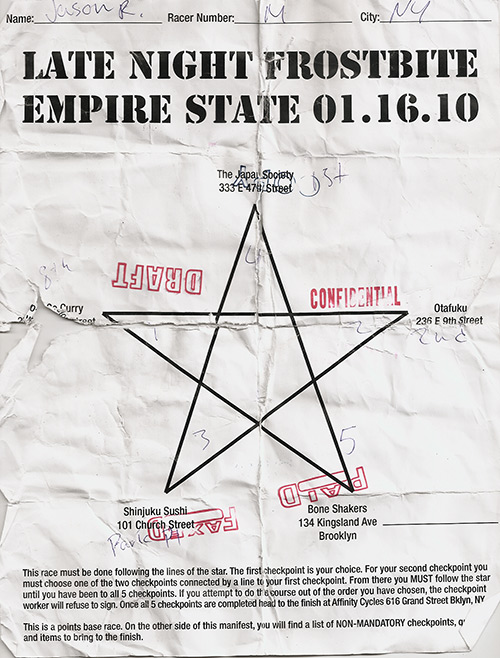 Name: Jason R. Racer Number: M City: NY
LATE NIGHT FROSTBITE
EMPIRE STATE 01.16.10
The Japan Society
333 E 47th Street
DRAFT
CONFIDENTIAL
Curry
Street
Otafuku
236 E 9th Street
1
2
2nd
3
5
PAID
Shinjuku Sushi
101 Church Street
FAXED
Bone Shakers
134 Kingsland Ave
Brooklyn
This race must be done following the lines of the star. The first checkpoint is your choice. For your second checkpoint you
must choose one of the two checkpoints connected by a line to your first checkpoint. From there you MUST follow the star
until you have been to all 5 checkpoints. If you attempt to do the course out of the order you have chosen, the checkpoint
worker will refuse to sign. Once all 5 checkpoints are completed head to the finish at Affinity Cycles 616 Grand Street Bklyn, NY
This is a points base race. On the other side of this manifest, you will find a list of NON-MANDATORY checkpoints,
and items to bring to the finish.